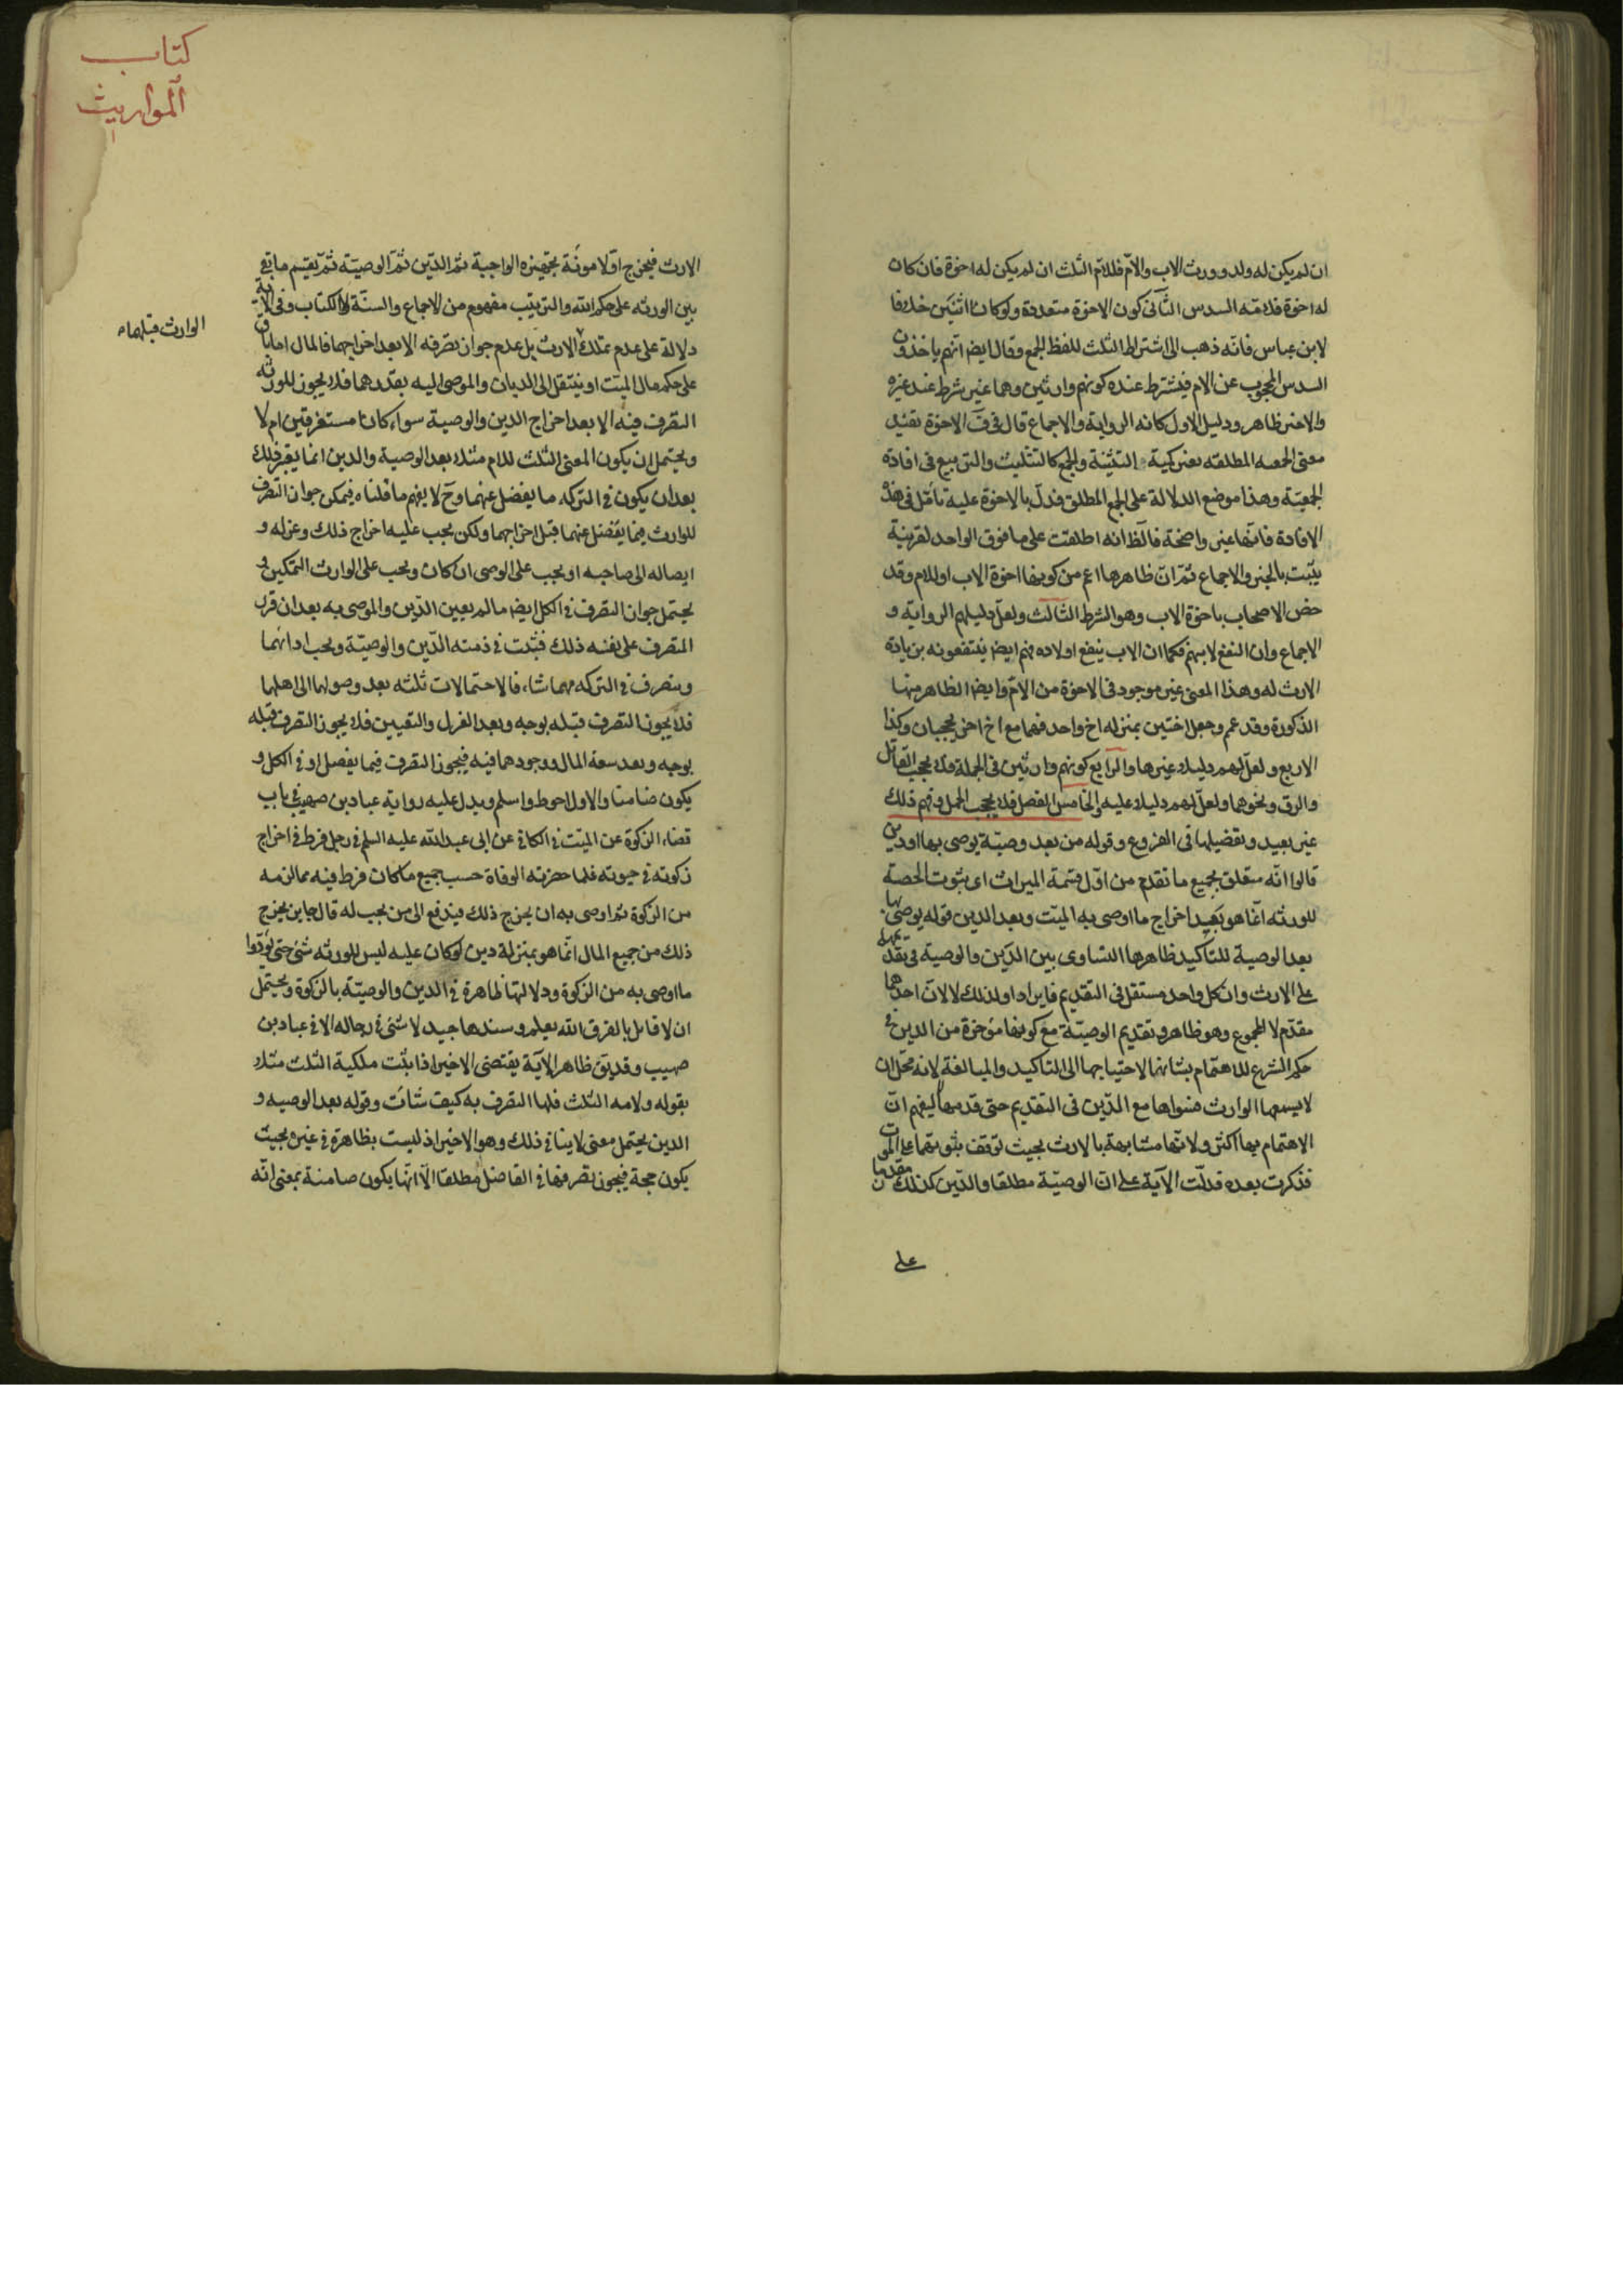 ان لم يكن له ولد وورث الاب والام فللام الثلث ان لم يكن له اخوة فان كان
له اخوة فلامه السدس الثانى كون الاخوة متعددة ولو كانا اثنين خلافا
لابن عباس فانه ذهب الى اشتراط الثلث للفظ الجمع وقال ايضا انهم ياخذون
السدس المحجوب عن الام فيشترط عنده كونهم وارثين وهما غير شرط عند غيره
والاخير ظاهر ودليل الاول كانه الرواية والاجماع قال فى ف الاخوة تفيد
معنى الجمعيه المطلقه بغير كمية التثنية والجمع كالتثليث والتربيع فى افادة
الجمعيّة وهذا موضع الدلالة على الجمع المطلق فدلّ بالاخوة عليه تأمل فى هذه
الافادة فانها غير واضحة فالظ انه اطلقت على ما فوق الواحد لقرينة
يثبت بالخبر والاجماع ثمّ انّ ظاهرها اعم من كونها اخوة الاب او للام وقد
خص الاصحاب باخوة الاب وهو الشرط الثالث ولعلّ دليلهم الرواية و
الاجماع وان النفع لابيهم فكما ان الاب ينفع اولاده فهم ايضا ينتفعونه بزيادة
الارث له وهذا المعنى غير موجود فى الاخوة من الامّ وايضا الظاهر منها
الذكورة وقد عم وجعل اختين بمنزله اخ واحد فهما مع اخ اخر يحجبان وكذا
الاربع ولعلّ لهم دليلا غيرها والرابع كونهم وارثين فى الجملة فلا يحجب القاتل
والرق ونحوهما ولعلّ لهم دليلا عليه والخامس الفصل فلا يحجب الحمل وفهم ذلك
غير بعيد وتفصيلها فى الفروع وقوله من بعد وصيّة يوصى بها او دين
قالوا انّه متعلق بجميع ما تقدم من اوّل قسمة الميراث اى بثبوت الحصة
للورثه انّما هو بعيد اخراج ما اوصى به الميّت وبعد الدين قوله يوصى بها
بعد الوصية للتاكيد ظاهرها التساوى بين الدّين والوصية فى تقدّيمهما
على الارث وان كل واحد مستقل فى التقديم فايراد او لذلك لا لانّ احدهما
مقدّم لا المجموع وهو ظاهر وتقديم الوصيّة مع كونها مؤخرة من الدين فى
حكم الشرع للاهتمام بشانها لاحتياجها الى التاكيد والمبالغة لانه محلّ ان
لا يسعها الوارث فسواها مع الدّين فى التقديم حتى قدمها ليفهم انّ
الاهتمام بها اكثر ولانّها مشابهة بالارث بحيث توقف ثبوتهما على الموت
فذكرت بعده فدلّت الآية على انّ الوصيّة مطلقا والدّين كذلك مقدّمان
على
كتاب
المواريث
الارث فيخرج اوّلا مونة تجهيزه الواجبة ثمّ الدّين ثمّ الوصيّة ثمّ يقسم ما بقى
بين الورثه على حكم الله والترتيب مفهوم من الاجماع والسنّة لا الكتاب وفى الاية
دلالة على عدم تملك الارث بل عدم جواز تصرفه الا بعد اخراجهما فالمال اما باق
الوارث قبلهما
على حكم مال الميّت او ينتقل الى الديان والموصى اليه بقدرهما فلا يجوز للورثه
التصرف فيه الا بعد اخراج الدين والوصية سواء كانا مستغرقين ام لا
ويحتمل ان يكون المعنى الثلث للام مثلا بعد الوصية والدين انما يقرر ذلك
بعد ان يكون فى التركه ما يفضل عنهما وح لا يفهم ما قلناه فيمكن جواز التصرف
للوارث فيما يفضل عنهما قبل اخراجهما ولكن يجب عليه اخراج ذلك وعزله و
ايصاله الى صاحبه او يجب على الوصى ان كان ويجب على الوارث التمكين و
يحتمل جواز التصرف فى الكل ايضا ما لم يعين الدّين والموصى به بعد ان قرر
المتصرف على نفسه ذلك فتثبت فى ذمته الدّين والوصيّة ويجب اداؤهما
ويتصرف فى التركه مهما شاء فالاحتمالات ثلثه بعد وصولها الى اهلها
فلا يجوز التصرف قبله بوجه وبعد العزل والتعيين فلا يجوز التصرف قبله
بوجه وبعد سعة المال ووجودهما فيه فيجوز التصرف فيما يفضل او فى الكل و
يكون ضامنا والاول احوط واسلم ويدل عليه رواية عباد بن صهيب فى باب
قضاء الزكوة عن الميّت فى الكافى عن ابى عبد الله عليه السلم فى رجل فرط فى اخراج
زكوته فى حيوته فلما حضرته الوفاة حسب جميع ما كان فرط فيه مما لزمه
من الزكوة ثم اوصى به ان يخرج ذلك فيدفع الى من يجب له قال جايز يخرج
ذلك من جميع المال انّما هو بمنزلة دين لو كان عليه ليس للورثه شئ حتى يؤدّوا
ما اوصى به من الزكوة ودلالتها ظاهرة فى الدين والوصيّة بالزكوة ويحتمل
ان لا قايل بالفرق الله يعلم وسندها جيد لا شئ فى رجاله الا فى عباد بن
صهيب وقد يق ظاهر الآية يقتضى الاخير اذا ثبت ملكية الثلث مثلا
بقوله ولامه الثلث فلها التصرف به كيف شائت وقوله بعد الوصيه و
الدين يحتمل معنى لا ينافى ذلك وهو الاخير اذ ليست بظاهرة فى غيره بحيث
يكون حجة فيجوز تصرفها فى الفاضل مطلقا الّا انّها يكون ضامنة بمعنى انّه